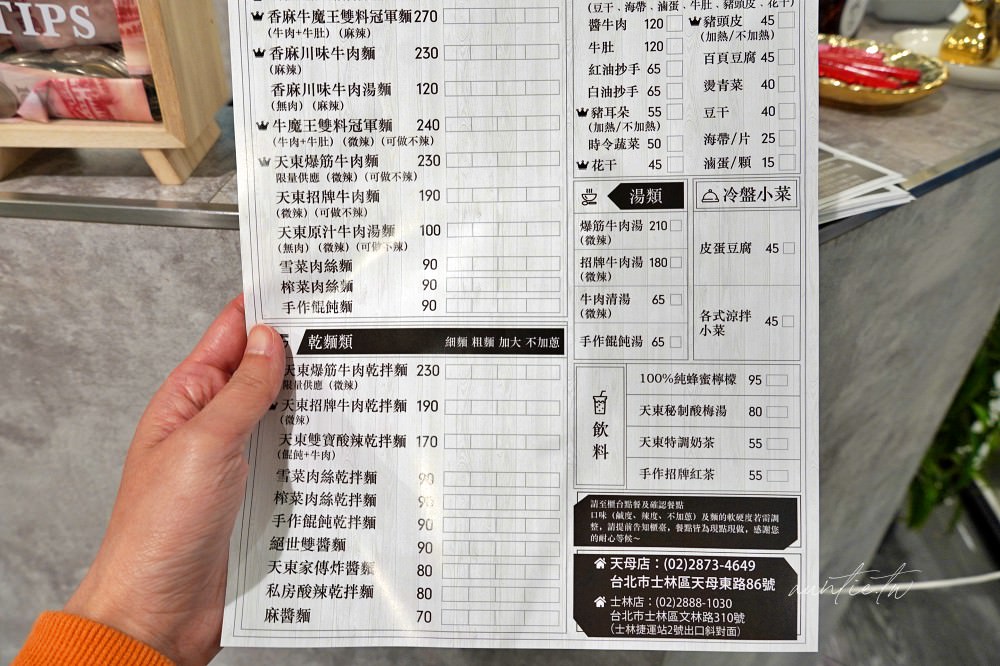 TIPS
香麻牛魔王雙料冠軍麵270
(牛肉+牛肚) (麻辣)
香麻川味牛肉麵 230
(麻辣)
香麻川味牛肉湯麵 120
(無肉) (麻辣)
牛魔王雙料冠軍麵 240
(牛肉+牛肚) (微辣) (可做不辣)
天東爆筋牛肉麵 230
限量供應 (微辣) (可做不辣)
天東招牌牛肉麵 190
(微辣) (可做不辣)
天東原汁牛肉湯麵 100
(無肉) (微辣) (可做不辣)
雪菜肉絲麵 90
榨菜肉絲麵 90
手作餛飩麵 90
乾麵類 細麵 粗麵 加大 不加蔥
天東爆筋牛肉乾拌麵 230
限量供應 (微辣)
天東招牌牛肉乾拌麵 190
(微辣)
天東雙寶酸辣乾拌麵 170
(餛飩+牛肉)
雪菜肉絲乾拌麵 90
榨菜肉絲乾拌麵 90
手作餛飩乾拌麵 90
絕世雙醬麵 90
天東家傳炸醬麵 80
私房酸辣乾拌麵 80
麻醬麵 70
(豆干、海帶、滷蛋、牛肚、豬頭皮、花干)
醬牛肉 120
牛肚 120
紅油抄手 65
白油抄手 65
豬耳朵 55
(加熱/不加熱)
時令蔬菜 50
花干 45
豬頭皮 45
(加熱/不加熱)
百頁豆腐 45
燙青菜 40
豆干 40
海帶/片 25
滷蛋/顆 15
湯類
爆筋牛肉湯 210
(微辣)
招牌牛肉湯 180
(微辣)
牛肉清湯 65
(微辣)
手作餛飩湯 65
冷盤小菜
皮蛋豆腐 45
各式涼拌
小菜 45
飲料
100%純蜂蜜檸檬 95
天東秘制酸梅湯 80
天東特調奶茶 55
手作招牌紅茶 55
請至櫃台點餐及確認餐點
口味（鹹度、辣度、不加蔥）及麵的軟硬度若需調
整，請提前告知櫃臺，餐點皆為現點現做，感謝您
的耐心等候～
天母店：(02)2873-4649
台北市士林區天母東路86號
士林店：(02)2888-1030
台北市士林區文林路310號
(士林捷運站2號出口斜對面)
auntie.tw